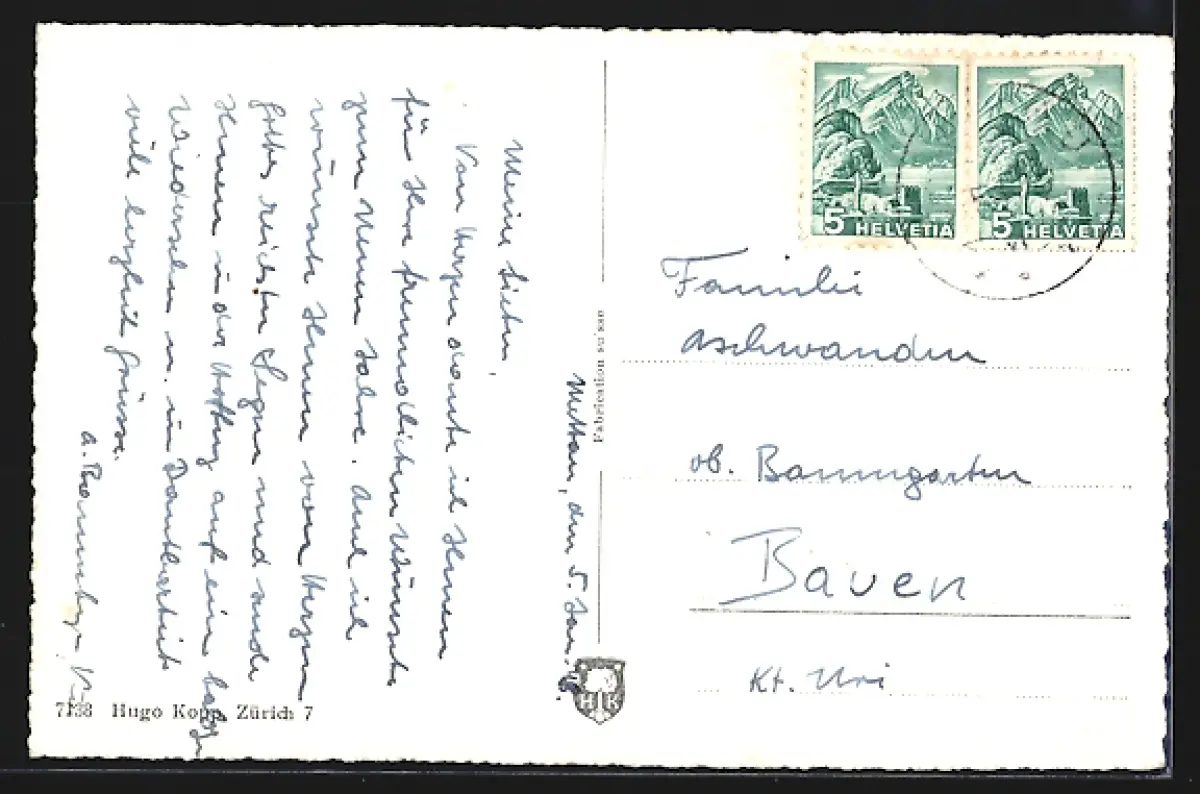 Mettau, den 5. Jan. 48.
Meine Lieben,
Von Herzen danke ich Ihnen
für Ihre freundlichen Wünsche
zum Neuen Jahre. Auch ich
wünsche Ihnen von Herzen
Gottes reichsten Segen und sende
Ihnen in der Hoffng auf ein bald.
Wiedersehen u. in Dankbarkeit
viele herzlich Grüsse.
A.
Fabrication suisse
HK
7138 Hugo Kopp, Zürich 7
5 HELVETIA
5 HELVETIA
Familie
Aschwanden
ob. Baumgarten
Bauen
Kt. Uri